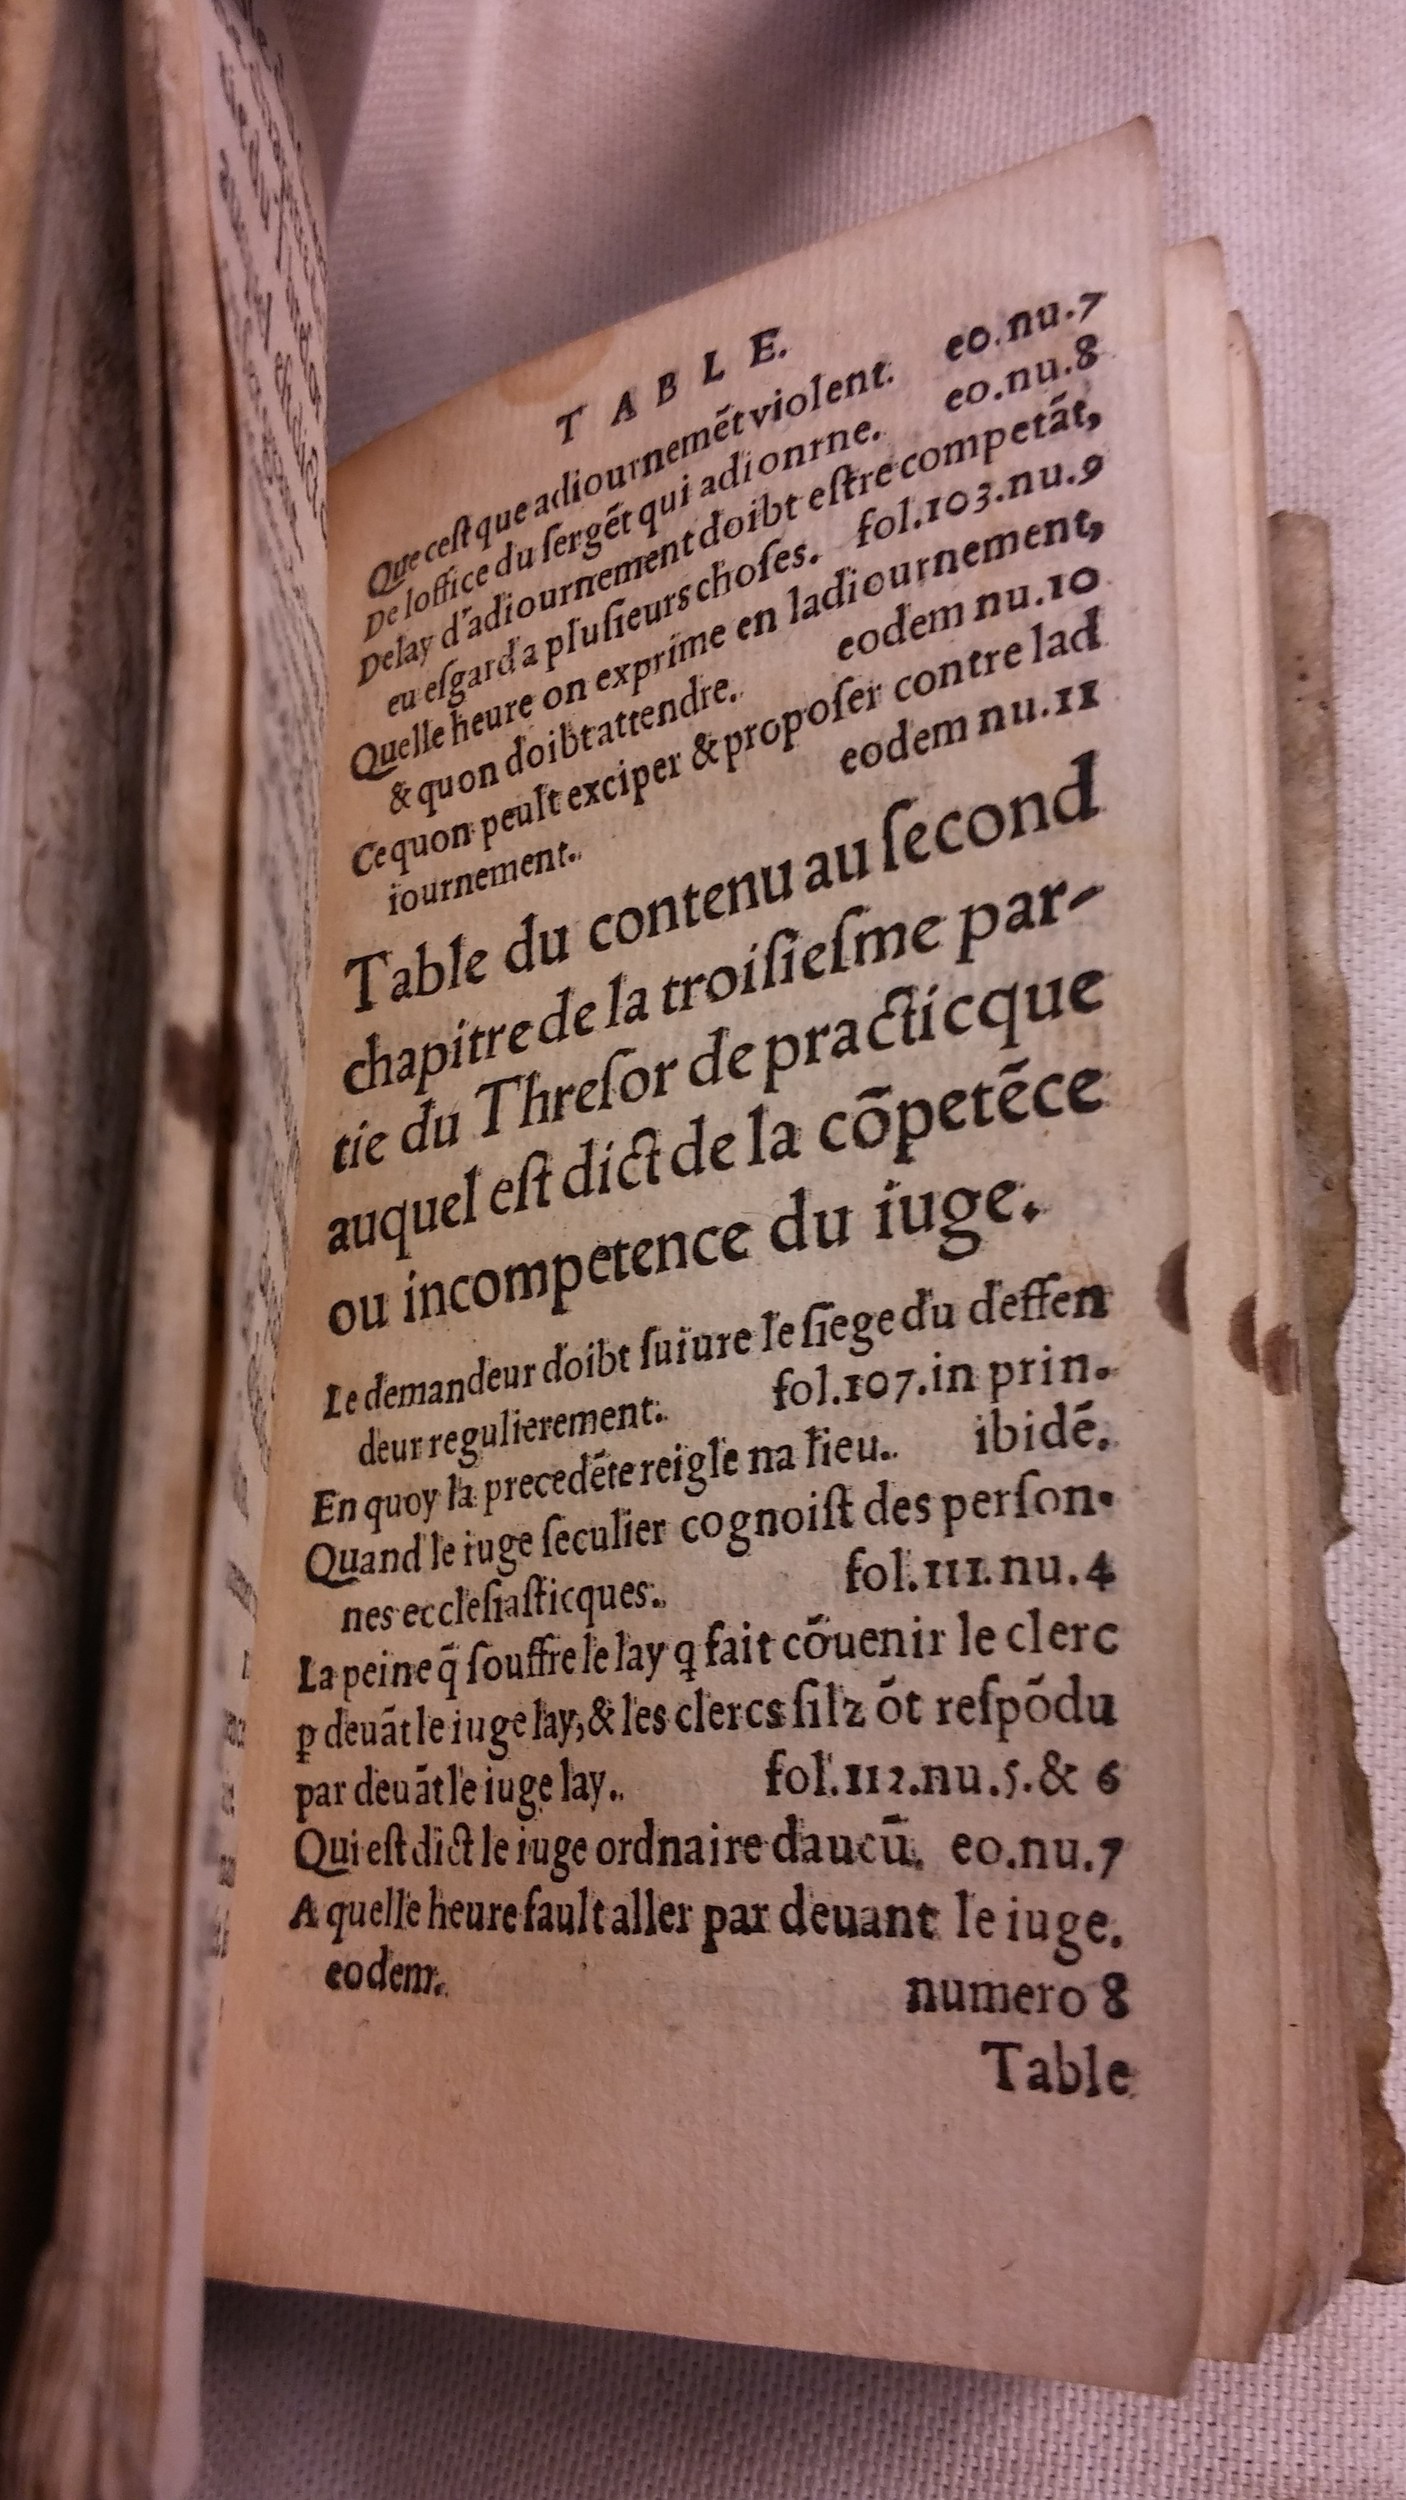 TABLE.
Que cest que adiournemẽt violent. eo.nu.7
De loffice du ſergẽt qui adionrne. eo.nu.8
Delay d'adiournement doibt eſtre competãt,
eu eſgard a pluſieurs choſes. fol.103.nu.9
Quelle heure on exprime en ladiournement,
& quon doibt attendre. eodem nu.10
Ce quon peult exciper & propoſer contre lad
iournement. eodem nu.11
Table du contenu au ſecond
chapitre de la troiſieſme par-
tie du Threſor de practicque
auquel eſt dict de la cõpetẽce
ou incompetence du iuge.
Le demandeur doibt ſuiure le ſiege du deffen
deur regulierement. fol.107.in prin.
En quoy la precedẽte reigle na lieu. ibidẽ.
Quand le iuge ſeculier cognoiſt des perſon-
nes eccleſiaſticques. fol.111.nu.4
La peine q̃ ſouffre le lay q fait cõuenir le clerc
ꝑ deuãt le iuge lay, & les clercs ſilz õt reſpõdu
par deuãt le iuge lay. fol.112.nu.5.& 6
Qui eſt dict le iuge ordnaire daucũ. eo.nu.7
A quelle heure fault aller par deuant le iuge.
eodem. numero 8
Table